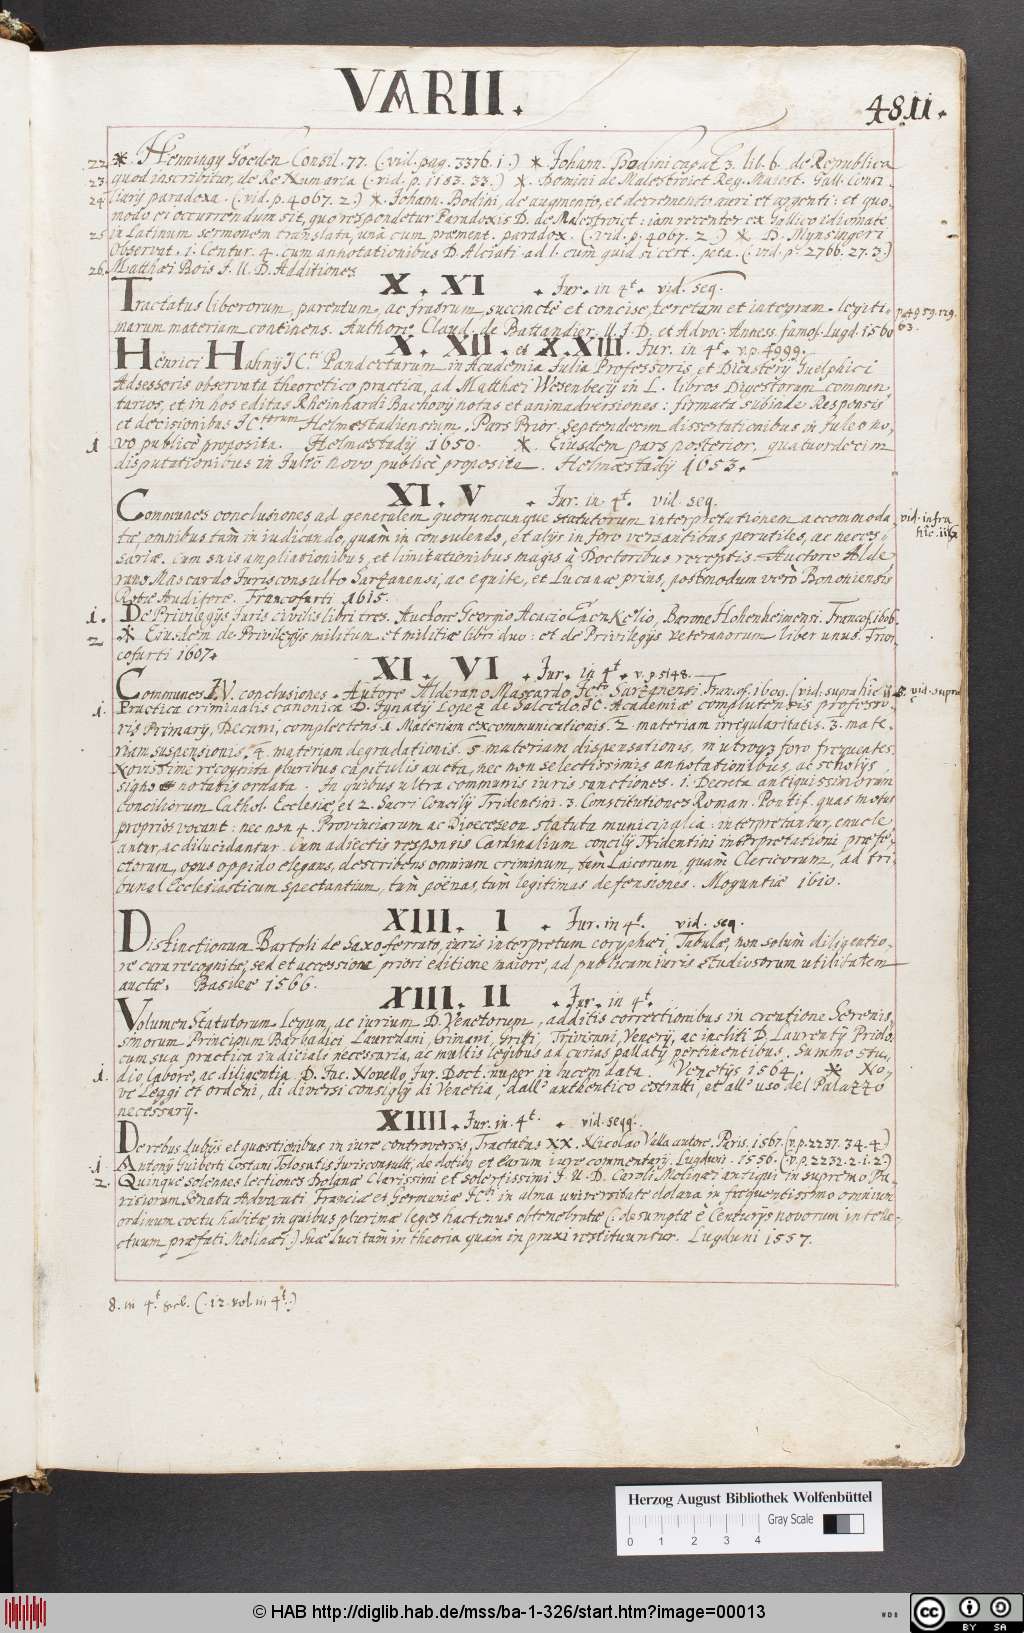 VARII.
4811.
22. * Henningy Goeden Consil. 77. (. vid. pag. 3376. 1.) * Johann. Bodini caput 3. lib. 6. de Republica
23. quod inscribitur, de Re Numaria (. vid. p. 1183. 33.) *. Domini de Malestroict Reg. Maiest. Gall. Consi-
24. liarij paradoxa. (. vid. p. 4067. 2.) *. Johann. Bodini, de augmento, et decremento auri et argenti: et quo-
modo ei occurrendum sit, quo respondetur Paradoxis D. de Malestroict: iam recenter ex Gallico idiomate
25. in Latinum sermonem translata, unà cum præment. paradox. (. vid. p. 4067. 2.) * D. Mynsingeri
Observat. 1. Centur. 4. cum annotationibus D. Alciati. ad l. cum quid si cert. peta. (. vid. p. 2766. 27. 3.)
26. Matthæi Bois J. U. D. Additiones
X. XI . Jur. in 4t. vid. seq.
Tractatus liberorum, parentum, ac fratrum, succinctè et concisè teretam et integram legiti-
marum materiam continens. Authore Claud. de Battandier, U. J. D. et Advoc. Anness. famos. Lugd. 1560
p. 4959. 129.
63.
X. XII. et X. XIII. Jur. in 4t. v. p. 4999.
Henrici Hahnij JCti Pandectarum in Academia Julia Professoris, et Dicasterij Guelphici
Adsessoris observata theoretico practica, ad Matthæi Wesenbecij in L. libros Digestorum commen-
tarios, et in hos editas Rheinhardi Bachovij notas et animadversiones: firmata subinde Responsis
et decisionibus JCtorum Helmæstadiensium, Pars Prior septendecim dissertationibus in Juleo no-
1 vo publicè proposita. Helmæstadij 1650. * Eiusdem pars posterior, quatuordecim
disputationibus in Juleo novo publicè proposita. Helmæstadij 1653.
XI. V . Jur. in 4t. vid. seq.
Communes conclusiones ad generalem quorumcunque statutorum interpretationem accommoda-
tæ, omnibus tàm in iudicando, quàm in consulendo, et alijs in foro versantibus perutiles, ac neces-
sariæ. Cum suis ampliationibus, et limitationibus magis à Doctoribus receptis. Auctore Alde-
rano Mascardo Jurisconsulto Sarzanensi, ac equite, et Lucanæ prius, postmodum verò Bononiensis
Rotæ Auditore. Francofurti 1615.
vid. infra
hîc. 11.6.
1. De Privilegijs Juris civilis libri tres. Auctore Georgio Acacio Enenkelio, Barone Hohenheimensi. Francof. 1606.
2 * Eiusdem de Privilegijs militum et militiæ libri duo: et de Privilegijs veteranorum liber unus. Fran-
cofurti 1607.
XI. VI . Jur. in 4t. v. p. 5148.
Communes I.V. conclusiones. Autore Alderano Mascardo JCto Sarzanensi. Francof. 1609. (vid. supra hîc 11.5. vid. supra
1. Practica criminalis canonica D. Ignatij Lopez de Salcedo JC. Academiæ complutensis professo-
ris Primarij, Decani, complectens. 1 Materiam excommunicationis. 2. materiam irregularitatis. 3. mate-
riam suspensionis. 4. materiam degradationis. 5. materiam dispensationis, in utroque foro frequentes.
Novissimè recognita pluribus capitulis aucta, nec non selectissimis annotationibus, ac scholijs
signo notatis ornata. In quibus ultra communis iuris sanctiones. 1. Decreta antiquissimorum
Conciliorum Cathol. Ecclesiæ, et 2. Sacri Concilij Tridentini. 3. Constitutiones Roman. Pontif. quas motus
proprios vocant: nec non 4. Provinciarum ac Dioeceseon statuta municipalia: interpretantur, enucle-
antur, ac dilucidantur. Cum adiectis responsis Cardinalium concilij Tridentini interpretationi præfe-
ctorum, opus oppido elegans, describens omnium criminum, tàm Laicorum, quàm Clericorum, ad tri-
bunal Ecclesiasticum spectantium, tùm poënas, tùm legitimas defensiones. Moguntiæ 1610.
XIII. I . Jur. in 4t. vid. seq.
Distinctionum Bartoli de Saxoferrato, iuris interpretum coryphæi, Tabulæ, non solùm diligentio-
re cura recognitæ, sed et accessione priori editione maiore, ad publicam iuris studiosorum utilitatem
auctæ. Basileæ 1566.
XIII. II . Jur. in 4t.
Volumen Statutorum Legum, ac iurium D. Venetorum, additis correctionibus in creatione Serenis-
simorum Principum Barbadici Lauredani, Grimani, Gritti, Trivisani, Venerij, ac incliti D. Laurentij Prioli.
cum sua practica iudiciali necessaria, ac multis legibus ad curias pallatij pertinentibus. Summo stu-
1. dio labore, ac diligentia D. Jac. Novello Jur. Doct. nuper in lucem data. Venetijs 1564. * No-
ve Leggi et ordeni, di diversi consiglij di Venetia, dall' authentico estratti, et all' uso del Palazzo
necessarij.
XIIII. Jur. in 4t. . vid. seqq.
De rebus dubijs et quæstionibus in iure controversis, Tractatus XX. Nicolao Valla autore. Paris. 1567. (v. p. 2237. 34. 4.)
1 Antonij Guiberti Costani Tolosatis Jurisconsulti, de dotibus et earum iure commentarij. Lugduni. 1556. (. v. p. 2232. 2. 1. 2.)
2. Quinque solennes lectiones Dolanæ Clarissimi et solertissimi J. U. D. Caroli Molinæi antiqui in supremo Pa-
risiorum Senatu Advocati Franciæ et Germaniæ JCti in alma universitate dolana in frequentissimo omnium
ordinum coetu habitæ in quibus plurimæ leges hactenus obtenebratæ (. desumptæ è Centurijs novorum intelle-
ctuum præfati Molinæi.) suæ luci tàm in theoria quàm in praxi restituuntur. Lugduni 1557.
8. in 4t. (. 12. vol. in 4t.)
Herzog August Bibliothek Wolfenbüttel
Gray Scale
0 1 2 3 4
© HAB http://diglib.hab.de/mss/ba-1-326/start.htm?image=00013
WDB
cc BY SA